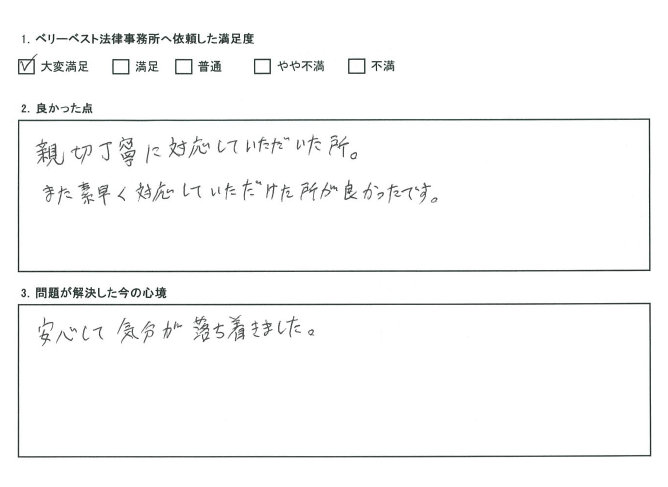 1. ベリーベスト法律事務所へ依頼した満足度
大変満足 満足 普通 やや不満 不満
2. 良かった点
親切丁寧に対応していただいた所。
また素早く対応していただけた所が良かったです。
3. 問題が解決した今の心境
安心して気分が落ち着きました。